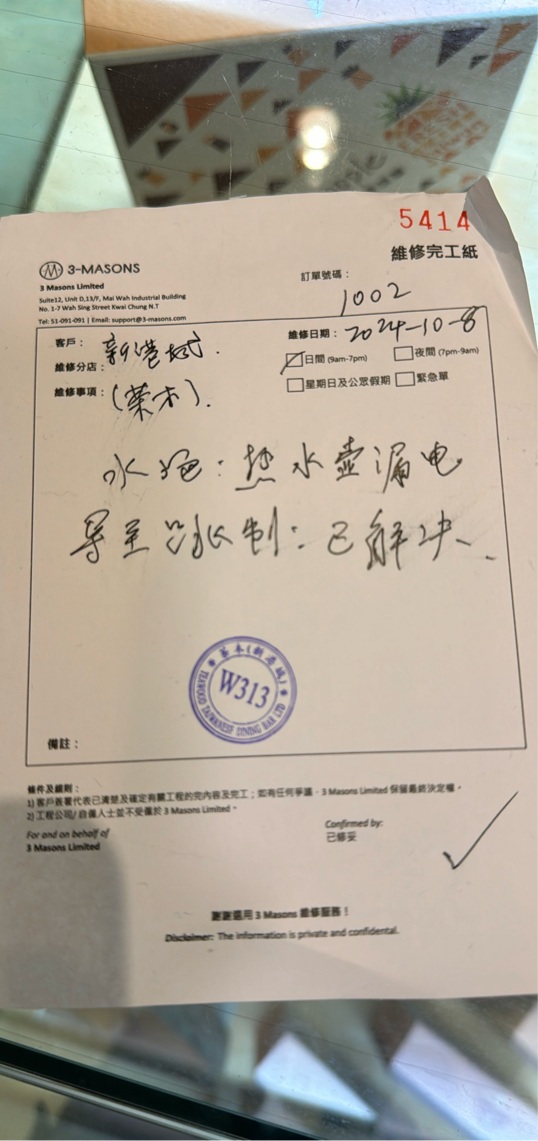 5414
維修完工紙
3-MASONS
3 Masons Limited
Suite12, Unit D,13/F, Mai Wah Industrial Building
No. 1-7 Wah Sing Street Kwai Chung N.T
Tel: 51-091-091 | Email: support@3-masons.com
訂單號碼：
1002
客戶：新港城
維修分店：
維修事項：(葉木).
維修日期：2024-10-8
日間 (9am-7pm) 夜間 (7pm-9am)
星期日及公眾假期 緊急單
水吧：热水壺漏电
导至 制：已解决
W313
TAIWANESE DINING BAR LTD
備註：
條件及細則：
1) 客戶簽署代表已清楚及確定有關工程的完內容及完工；如有任何爭議，3 Masons Limited 保留最終決定權。
2) 工程公司/自僱人士並不受僱於 3 Masons Limited。
For and on behalf of
3 Masons Limited
Confirmed by:
已修妥
謝謝選用 3 Masons 維修服務！
Disclaimer: The information is private and confidental.